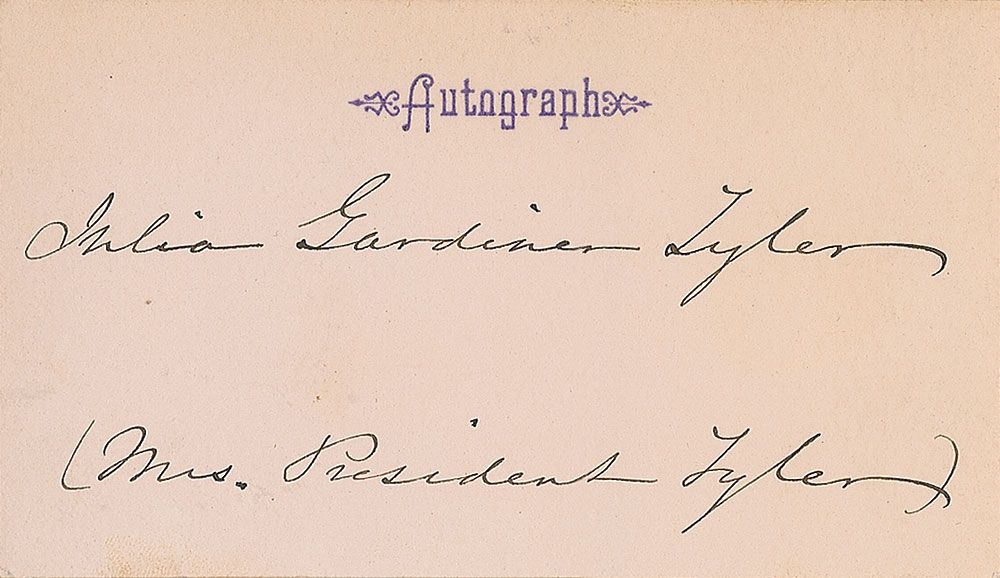 Autograph
Julia Gardiner Tyler
(Mrs. President Tyler)